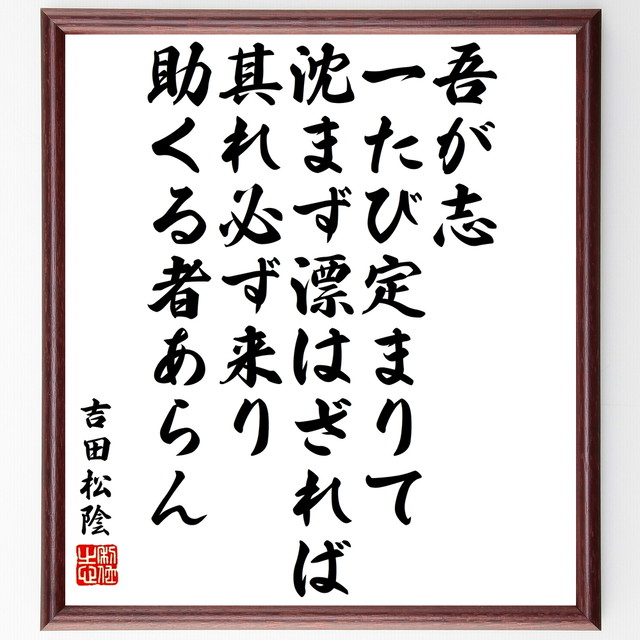 吾が志
一たび定まりて
沈まず漂はざれば
其れ必ず来り
助くる者あらん
吉田松陰